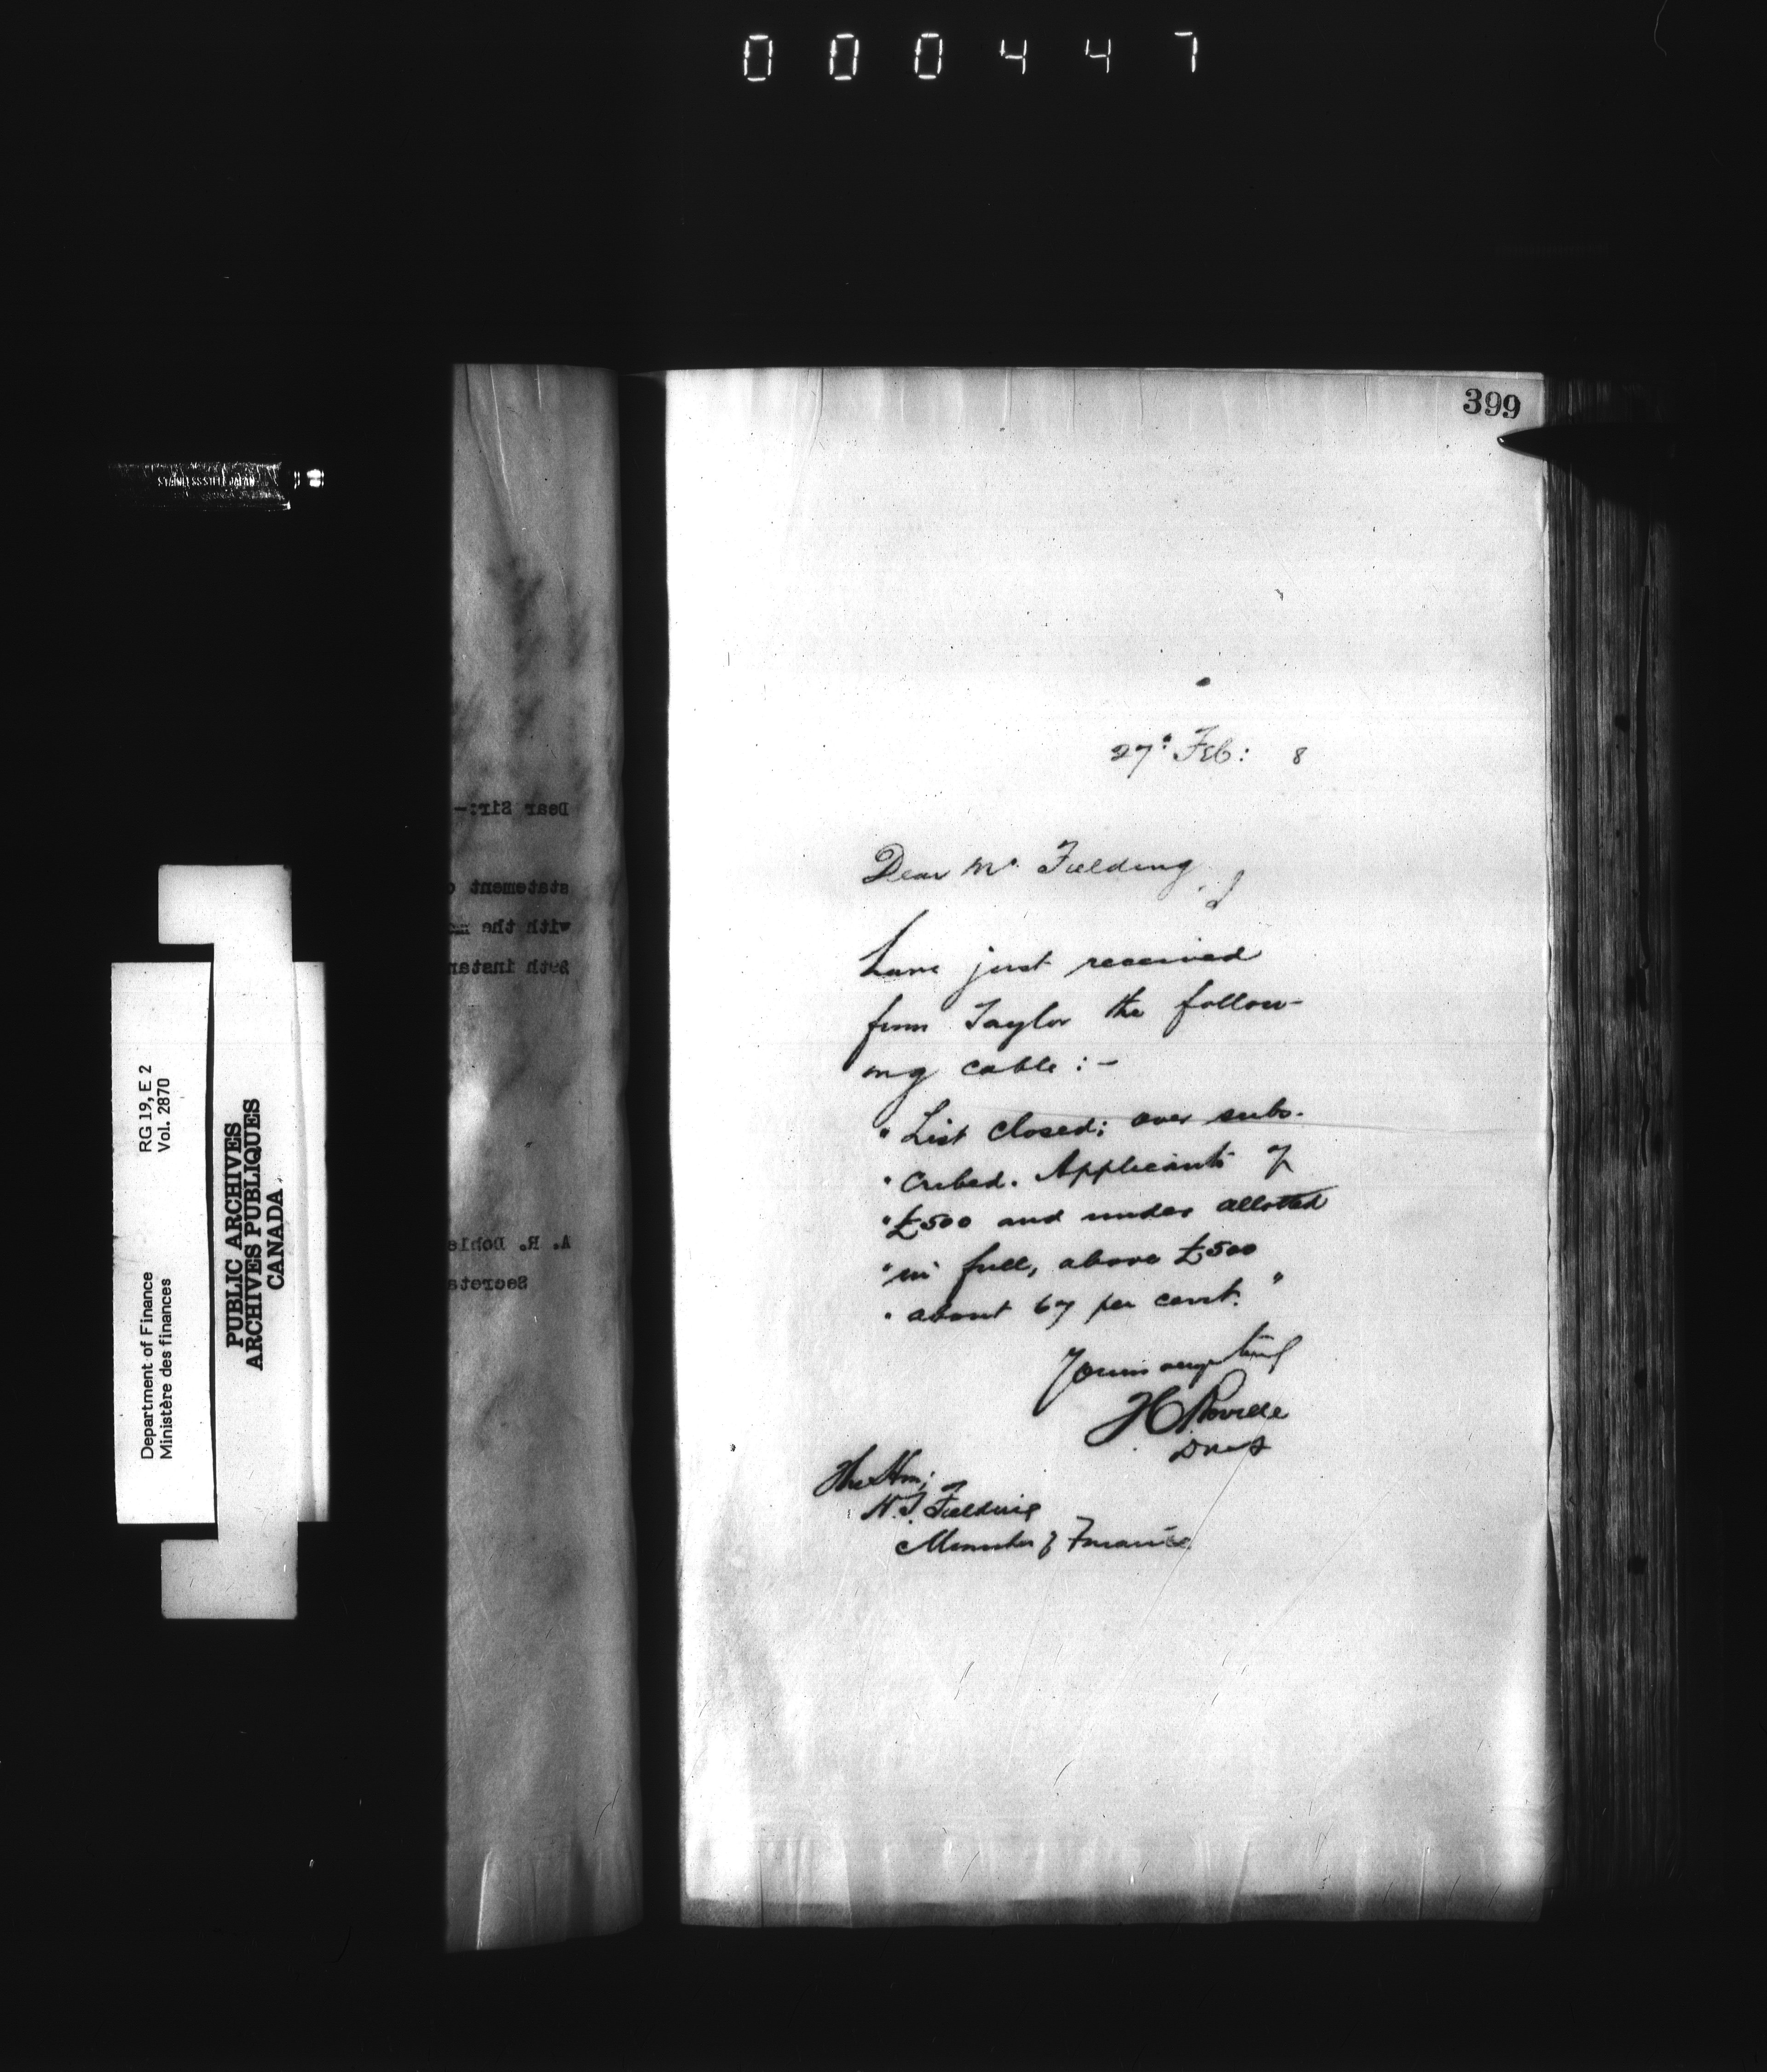 000447
399
27: Feb: 8
Dear Mr. Fielding
I
have just received
from Taylor the follow-
ing cable:-
"List closed; over subs-
"cribed. Applicants of
"£500 and under allotted
"in full, above £500
"about 67 per cent."
Yours very truly
The Hon:
W.S. Fielding
Minister of Finance
Dear Sir:-
statement
with the
instan
A. R.
Secreta
Department of Finance
Ministère des finances
RG 19, E 2
Vol. 2870
PUBLIC ARCHIVES
ARCHIVES PUBLIQUES
CANADA